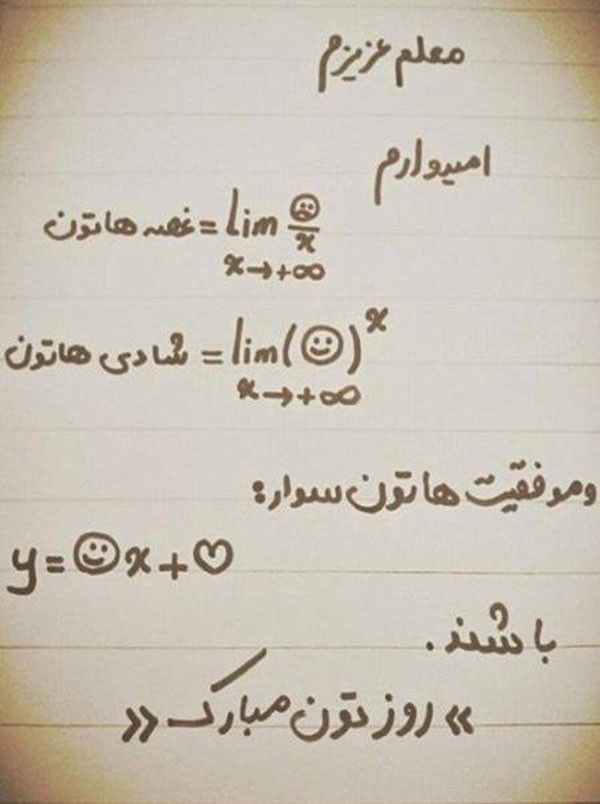 معلم عزیزم
امیدوارم
غصه هاتون = lim ☹/x
x→+∞
شادی هاتون = lim(☺)^x
x→+∞
وموفقیت هاتون سوار:
y=☺x+♡
باشند.
«روزتون مبارک»